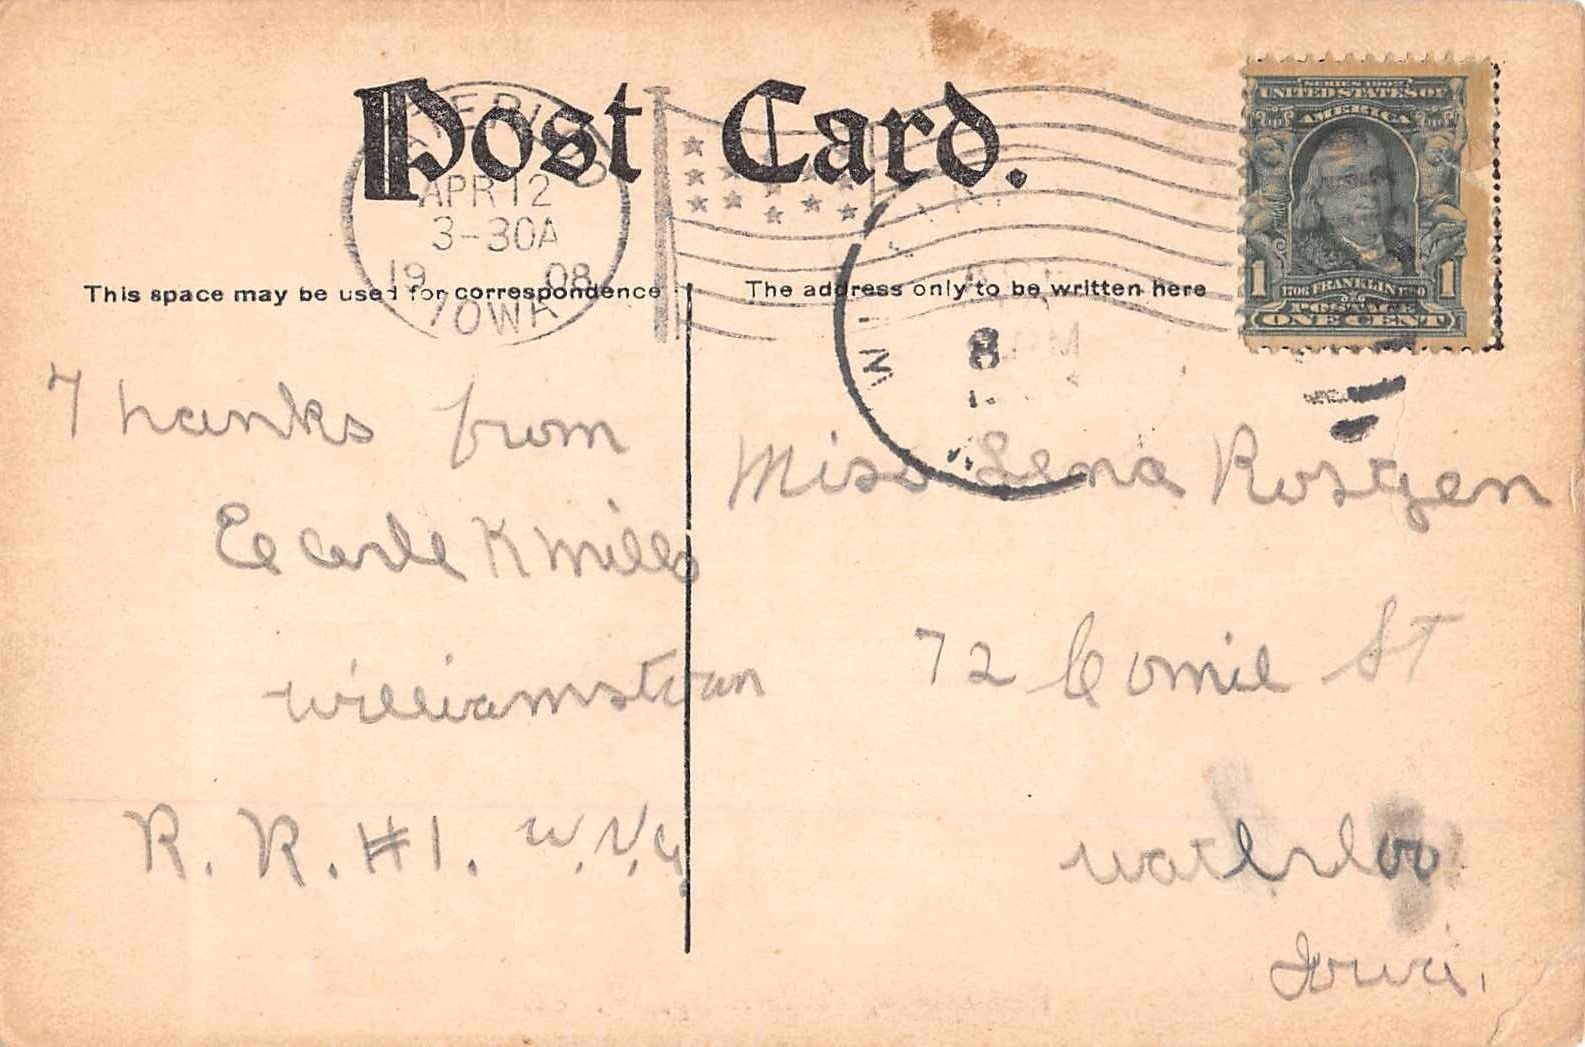 Post Card.
APR 12
3-30A
19 08
IOWA
This space may be used for correspondence
The address only to be written here
SERIES 1902
UNITED STATES OF
AMERICA
1 FRANKLIN 1
ONE CENT
WIL
8
Thanks from
Eearle K Mills
Williamstown
R. R. #1. W. Va.
Miss Lena Rostgen
72 St
Waterloo
Iowa.